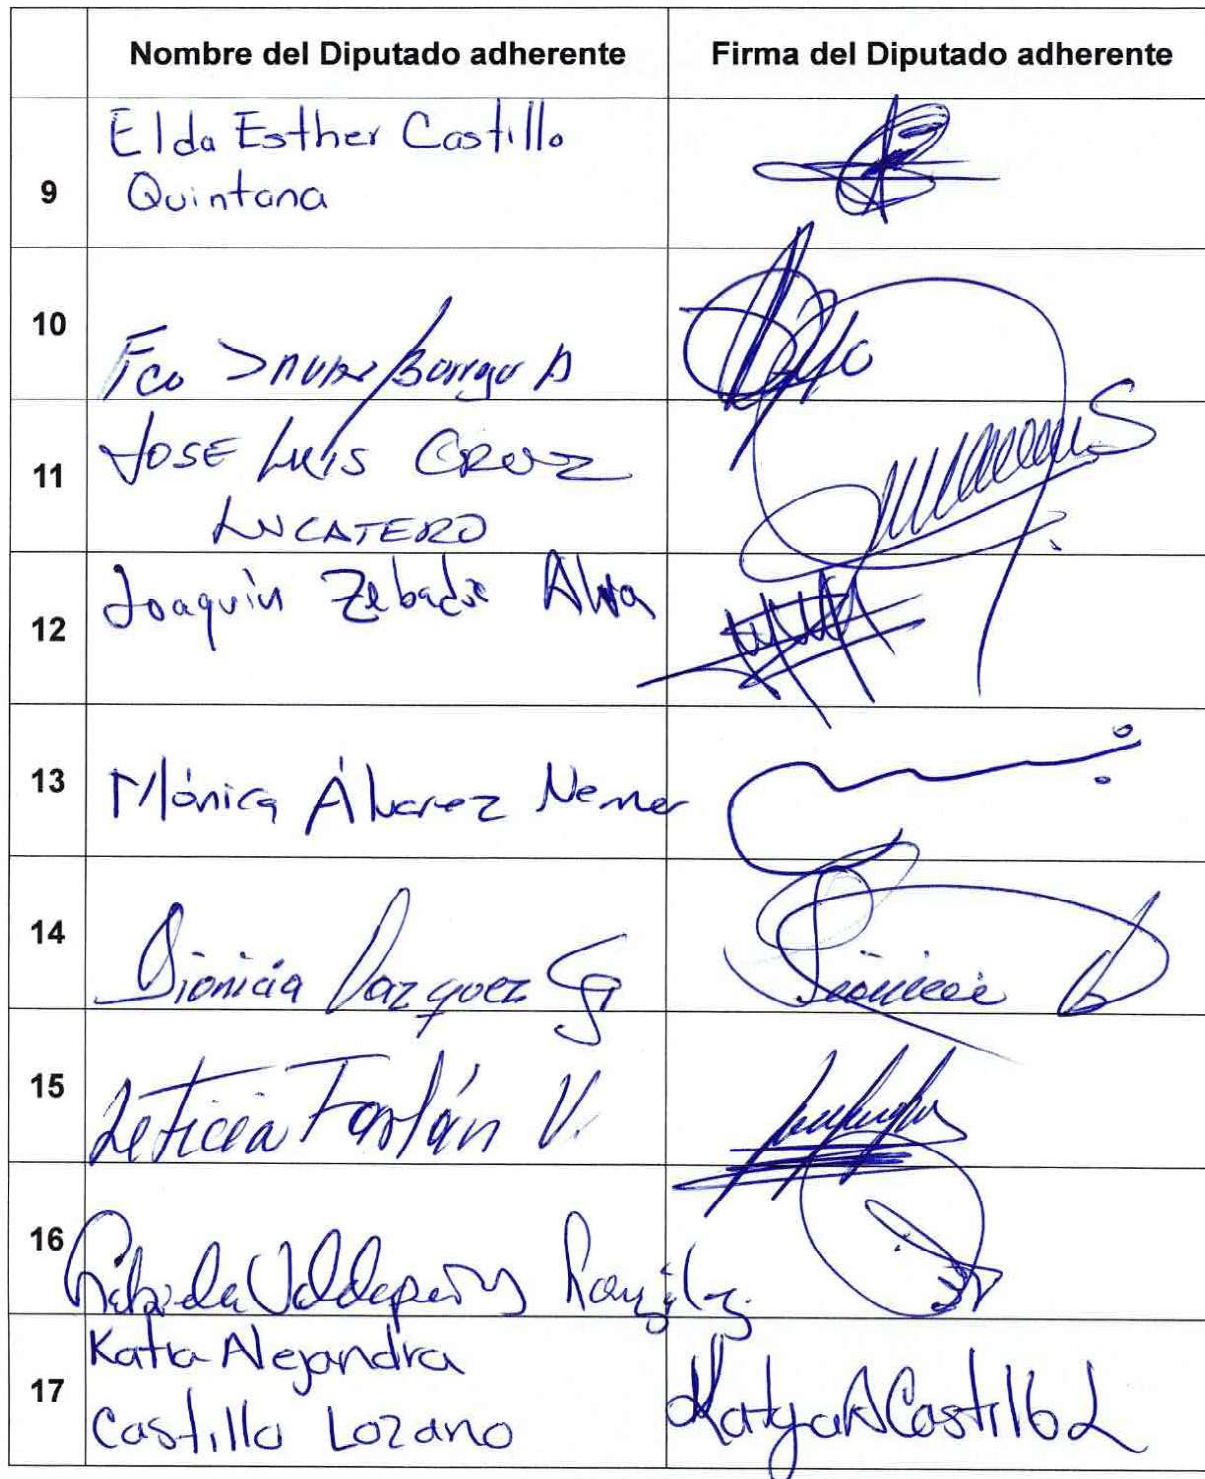 Nombre del Diputado adherente Firma del Diputado adherente
Elda Esther Castillo
9
Quintana
10
Fco Javier Borrego A
JOSE LUIS CRUZ
11
LUCATERO
12 Joaquín Zebadúa Alva
13 Mónica Álvarez Nemer
14 Dionicia Vazquez G
15 Leticia Farfán V.
16 Gabriela Valdepeñas González
Katia Alejandra
17
Castillo Lozano
Katya A Castillo L